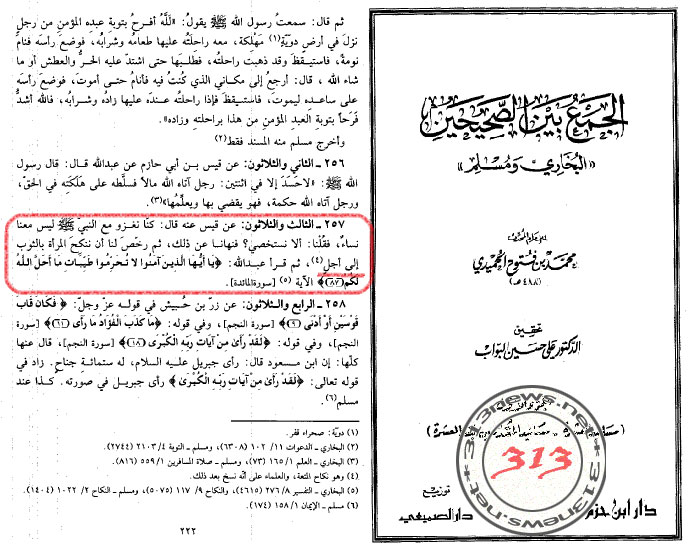 الجمع بين الصحيحين
«البخاري ومسلم»
محمد بن فتوح الحميدي
تحقيق
الدكتور علي حسين البواب
313news.net
313
توزيع
دار ابن حزم
دار الصميعي
ثم قال: سمعت رسول الله ﷺ يقول: «لَلّهُ أفرحُ بتوبة عبده المؤمن من رجل
نزل في أرضٍ دويّة(١) مَهْلِكة، معه راحلتُه عليها طعامُه وشرابُه، فوضع رأسَه فنام
نومةً، فاستيقظَ وقد ذهبت راحلتُه، فطلبَها حتى اشتدّ عليه الحرُّ والعطش أو ما
شاء الله، قال: أرجعُ إلى مكاني الذي كنتُ فيه فأنامُ حتى أموتَ، فوضعَ رأسَه
على ساعده ليموتَ، فاستيقظَ فإذا راحلتُه عنده عليها زادُه وشرابُه، فالله أشدُّ
فَرَحاً بتوبة العبد المؤمن من هذا براحلته وزاده».
وأخرج مسلم منه المسند فقط(٢)
٢٥٦ ـ الثاني والثلاثون: عن قيس بن أبي حازم عن عبدالله قال: قال رسول
الله ﷺ: «لاحسَدَ إلا في اثنتين: رجل آتاه الله مالاً فسلَّطه على هَلَكته في الحقّ،
ورجل آتاه الله حكمة، فهو يقضي بها ويعلّمها»(٣).
٢٥٧ ـ الثالث والثلاثون: عن قيس عنه قال: كنّا نغزو مع النبيّ ﷺ ليس معنا
نساءٌ، فقُلْنا: ألا نستخصي؟ فنهانا عن ذلك، ثم رخّص لنا أن ننكح المرأة بالثوب
إلى أجل(٤)، ثم قرأ عبدالله: ﴿يَا أَيُّهَا الَّذِينَ آمَنُوا لا تُحَرِّمُوا طَيِّبَاتِ مَا أَحَلَّ اللَّهُ
لَكُمْ (٨٧)﴾ الآية (٥) [سورة المائدة].
٢٥٨ ـ الرابع والثلاثون: عن زرّ بن حُبيش في قوله عزّ وجلّ: ﴿فَكَانَ قَابَ
قَوْسَيْنِ أَوْ أَدْنَى (٩)﴾ [سورة النجم]، وفي قوله: ﴿مَا كَذَبَ الْفُؤَادُ مَا رَأَى (١١)﴾ [سورة
النجم]، وفي قوله: ﴿لَقَدْ رَأَى مِنْ آيَاتِ رَبِّهِ الْكُبْرَى (١٨)﴾ [سورة النجم]، قال عنها
كلّها: إن ابن مسعود قال: رأى جبريل عليه السلام، له ستمائة جناح. زاد في
قوله تعالى: ﴿لَقَدْ رَأَى مِنْ آيَاتِ رَبِّهِ الْكُبْرَى﴾ رأى جبريل في صورته. كذا عند
مسلم(٦).
(١) دويّة: صحراء قفر.
(٢) البخاري ـ الدعوات ١١/ ١٠٢ (٦٣٠٨)، ومسلم ـ التوبة ٤/ ٢١٠٣ (٢٧٤٤)
(٣) البخاري ـ العلم ١/ ١٦٥ (٧٣)، ومسلم ـ صلاة المسافرين ١/ ٥٥٩ (٨١٦)
(٤) وهو نكاح المتعة، والعلماء على أنّه نسخ بعد ذلك.
(٥) البخاري ـ التفسير ٨/ ٢٧٦ (٤٦١٥)، والنكاح ٩/ ١١٧ (٥٠٧٥)، ومسلم ـ النكاح ٢/ ١٠٢٢ (١٤٠٤)
(٦) مسلم ـ الإيمان ١/ ١٥٨ (١٧٤).
٢٢٢